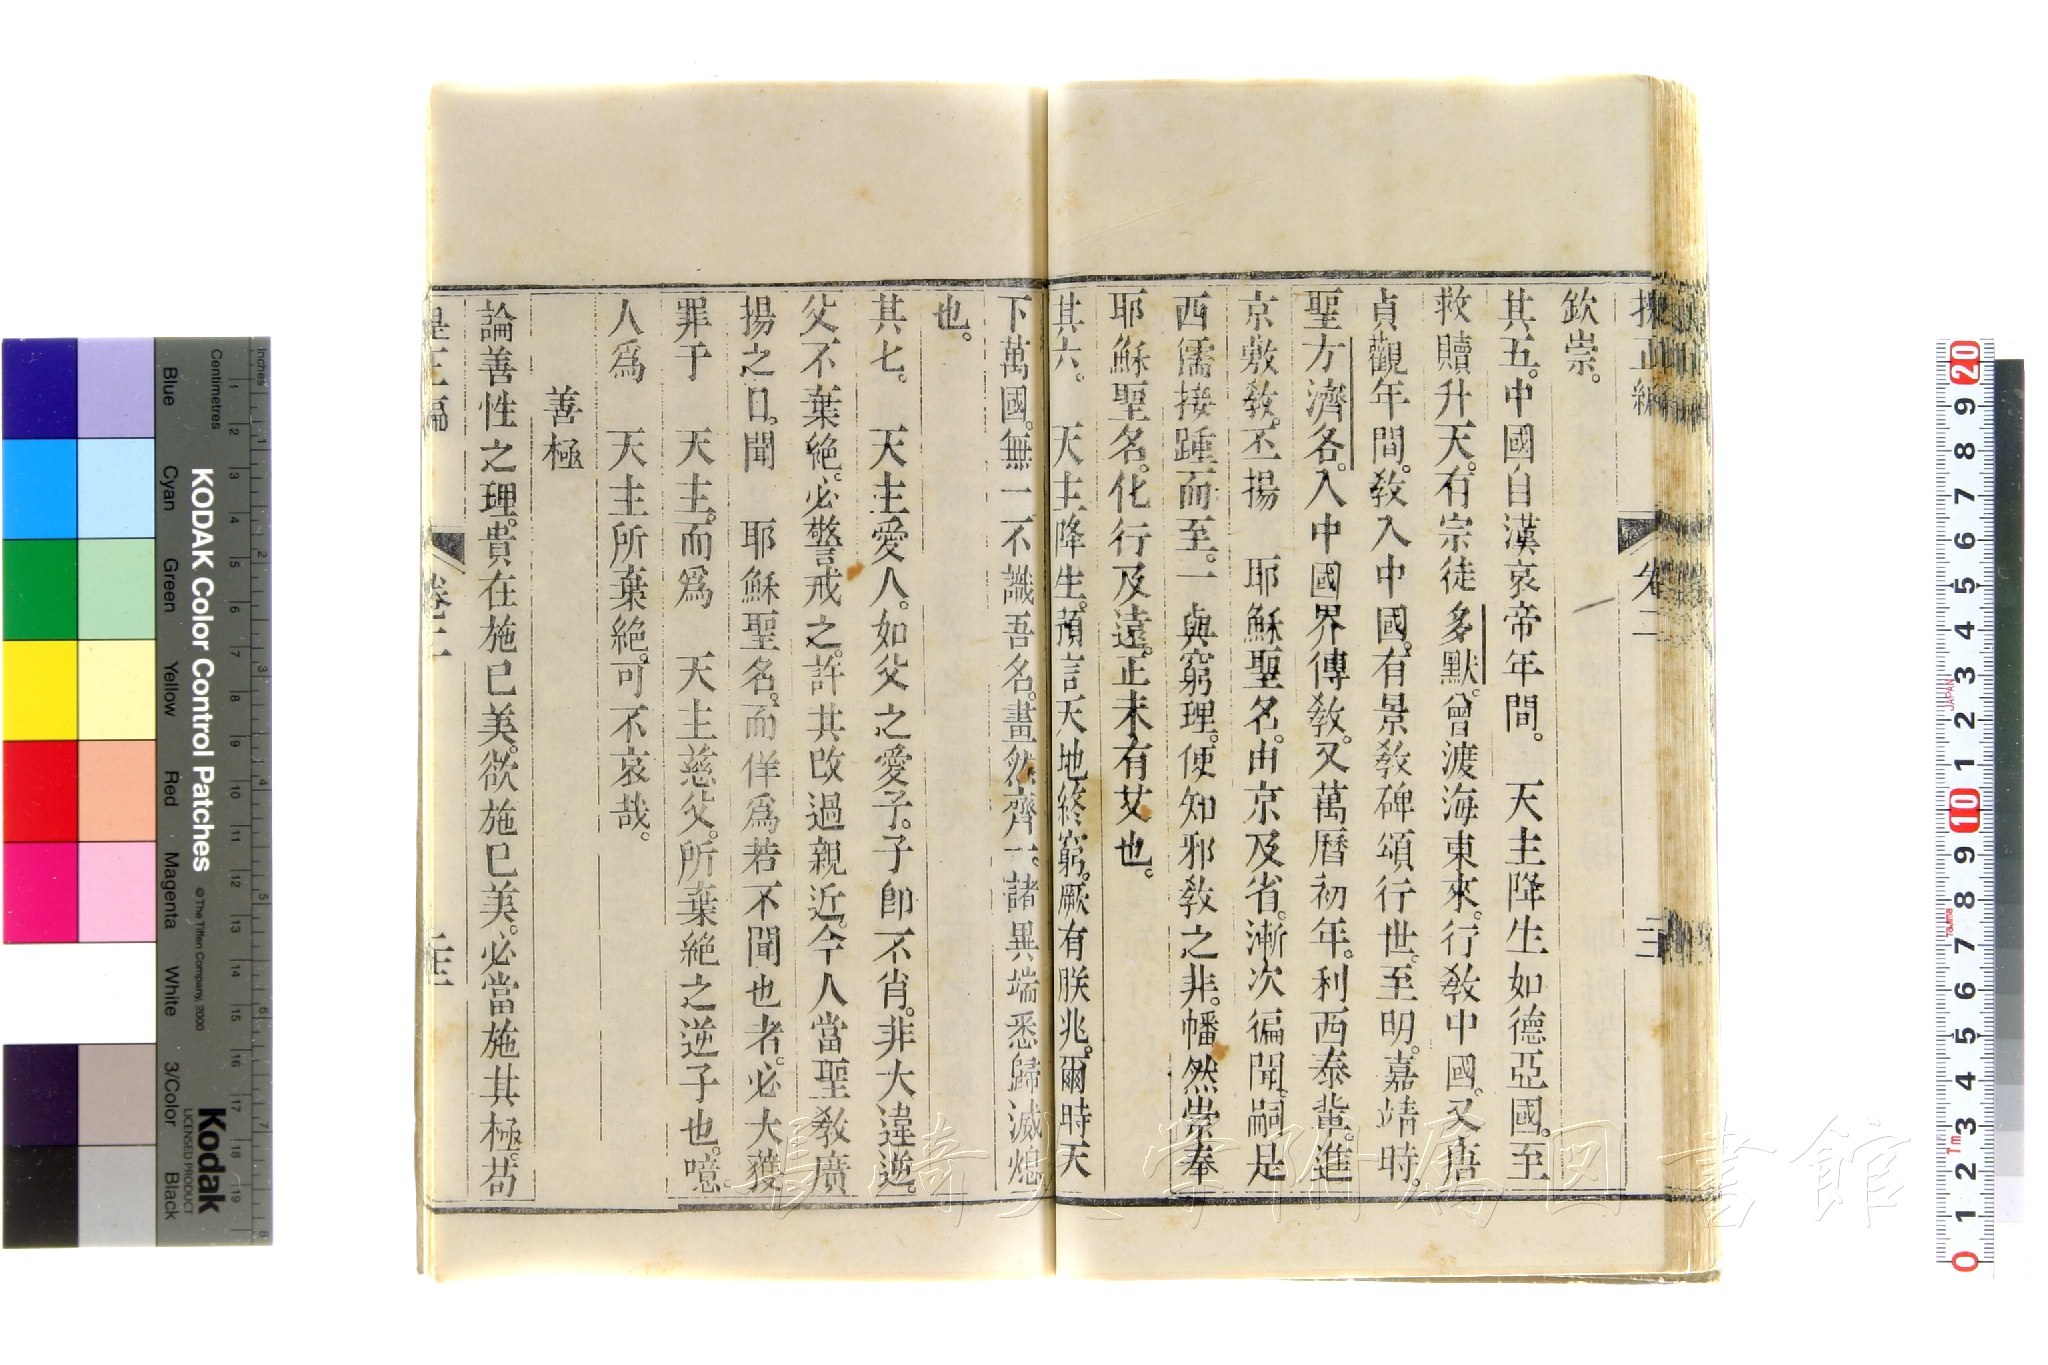 欽崇。
其五。中國自漢哀帝年間。 天主降生如德亞國。至
救贖升天。有宗徒多默。曾渡海東來。行敎中國。又唐
貞觀年間。敎入中國。有景敎碑頌行世。至明。嘉靖時。
聖方濟各。入中國界傳敎。又萬曆初年。利西泰輩。進
京敷敎。丕揚 耶穌聖名。由京及省。漸次徧聞。嗣是
西儒接踵而至。一與窮理。便知邪敎之非。幡然崇奉
耶穌聖名。化行及遠。正未有艾也。
其六。 天主降生。預言天地終窮。厥有朕兆。爾時天
下萬國。無一不識吾名。畫然齊一。諸異端悉歸滅熄
也。
其七。 天主愛人。如父之愛子。子卽不肖。非大違逆。
父不棄絶。必警戒之。許其改過親近。今人當聖敎廣
揚之日。聞 耶穌聖名。而佯爲若不聞也者。必大獲
罪于 天主。而爲 天主慈父。所棄絶之逆子也。噫。
人爲 天主所棄絶。可不哀哉。
善極
論善性之理。貴在施已美。欲施已美。必當施其極。苟
卷二
三
長崎大学附属図書館
KODAK Color Control Patches
© The Tiffen Company, 2000
Kodak
LICENSED PRODUCT
Inches
Centimetres
Blue
Cyan
Green
Yellow
Red
Magenta
White
3/Color
Black
JAPAN